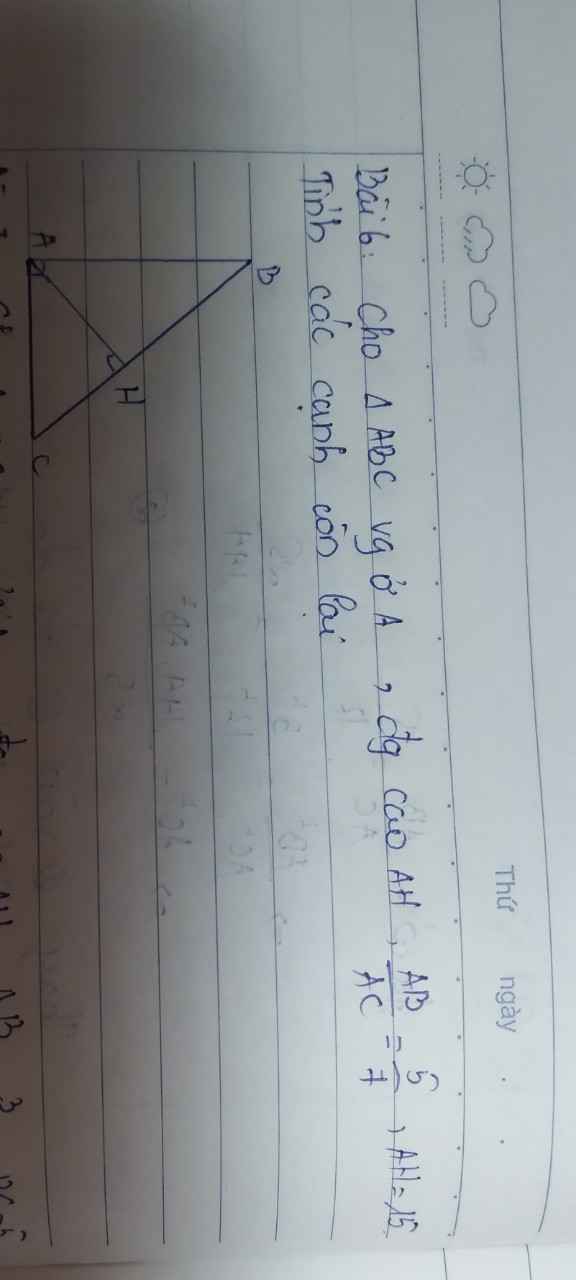 Thứ ngày
Bài 6: Cho Δ ABC vg ở A, đg cao AH, AB/AC = 5/7, AH = 15
Tính các cạnh còn lại
B
A
H
C